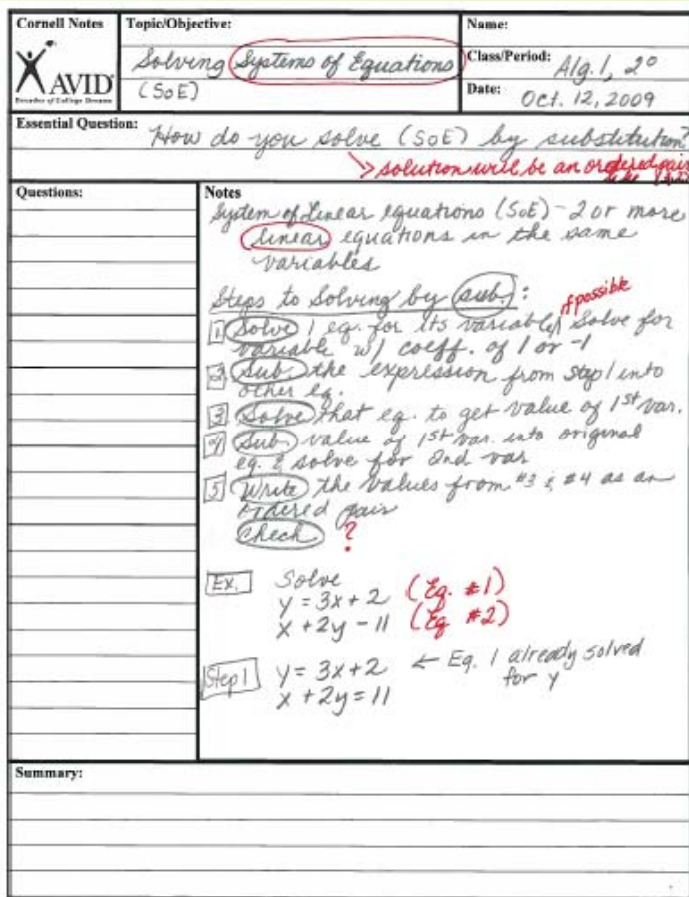 Cornell Notes
Topic/Objective:
Name:
Solving Systems of Equations
(SoE)
Class/Period: Alg. 1, 2°
AVID
Decades of College Dreams
Date: Oct. 12, 2009
Essential Question: How do you solve (SoE) by substitution?
solution will be an ordered pair
Questions:
Notes
System of Linear equations (SoE) - 2 or more
linear equations in the same
variables
Steps to Solving by sub.:
if possible
1 Solve 1 eq. for its variable, Solve for
variable w/ coeff. of 1 or -1
2 Sub. the expression from step 1 into
other eq.
3 Solve that eq. to get value of 1st var.
4 Sub value of 1st var. into original
eq. & solve for 2nd var
5 Write the values from #3 & #4 as an
ordered pair
Check ?
Ex. Solve
y = 3x + 2 (Eq. #1)
x + 2y - 11 (Eq #2)
Step 1 y = 3x + 2 ← Eq. 1 already solved
for y
x + 2y = 11
Summary: